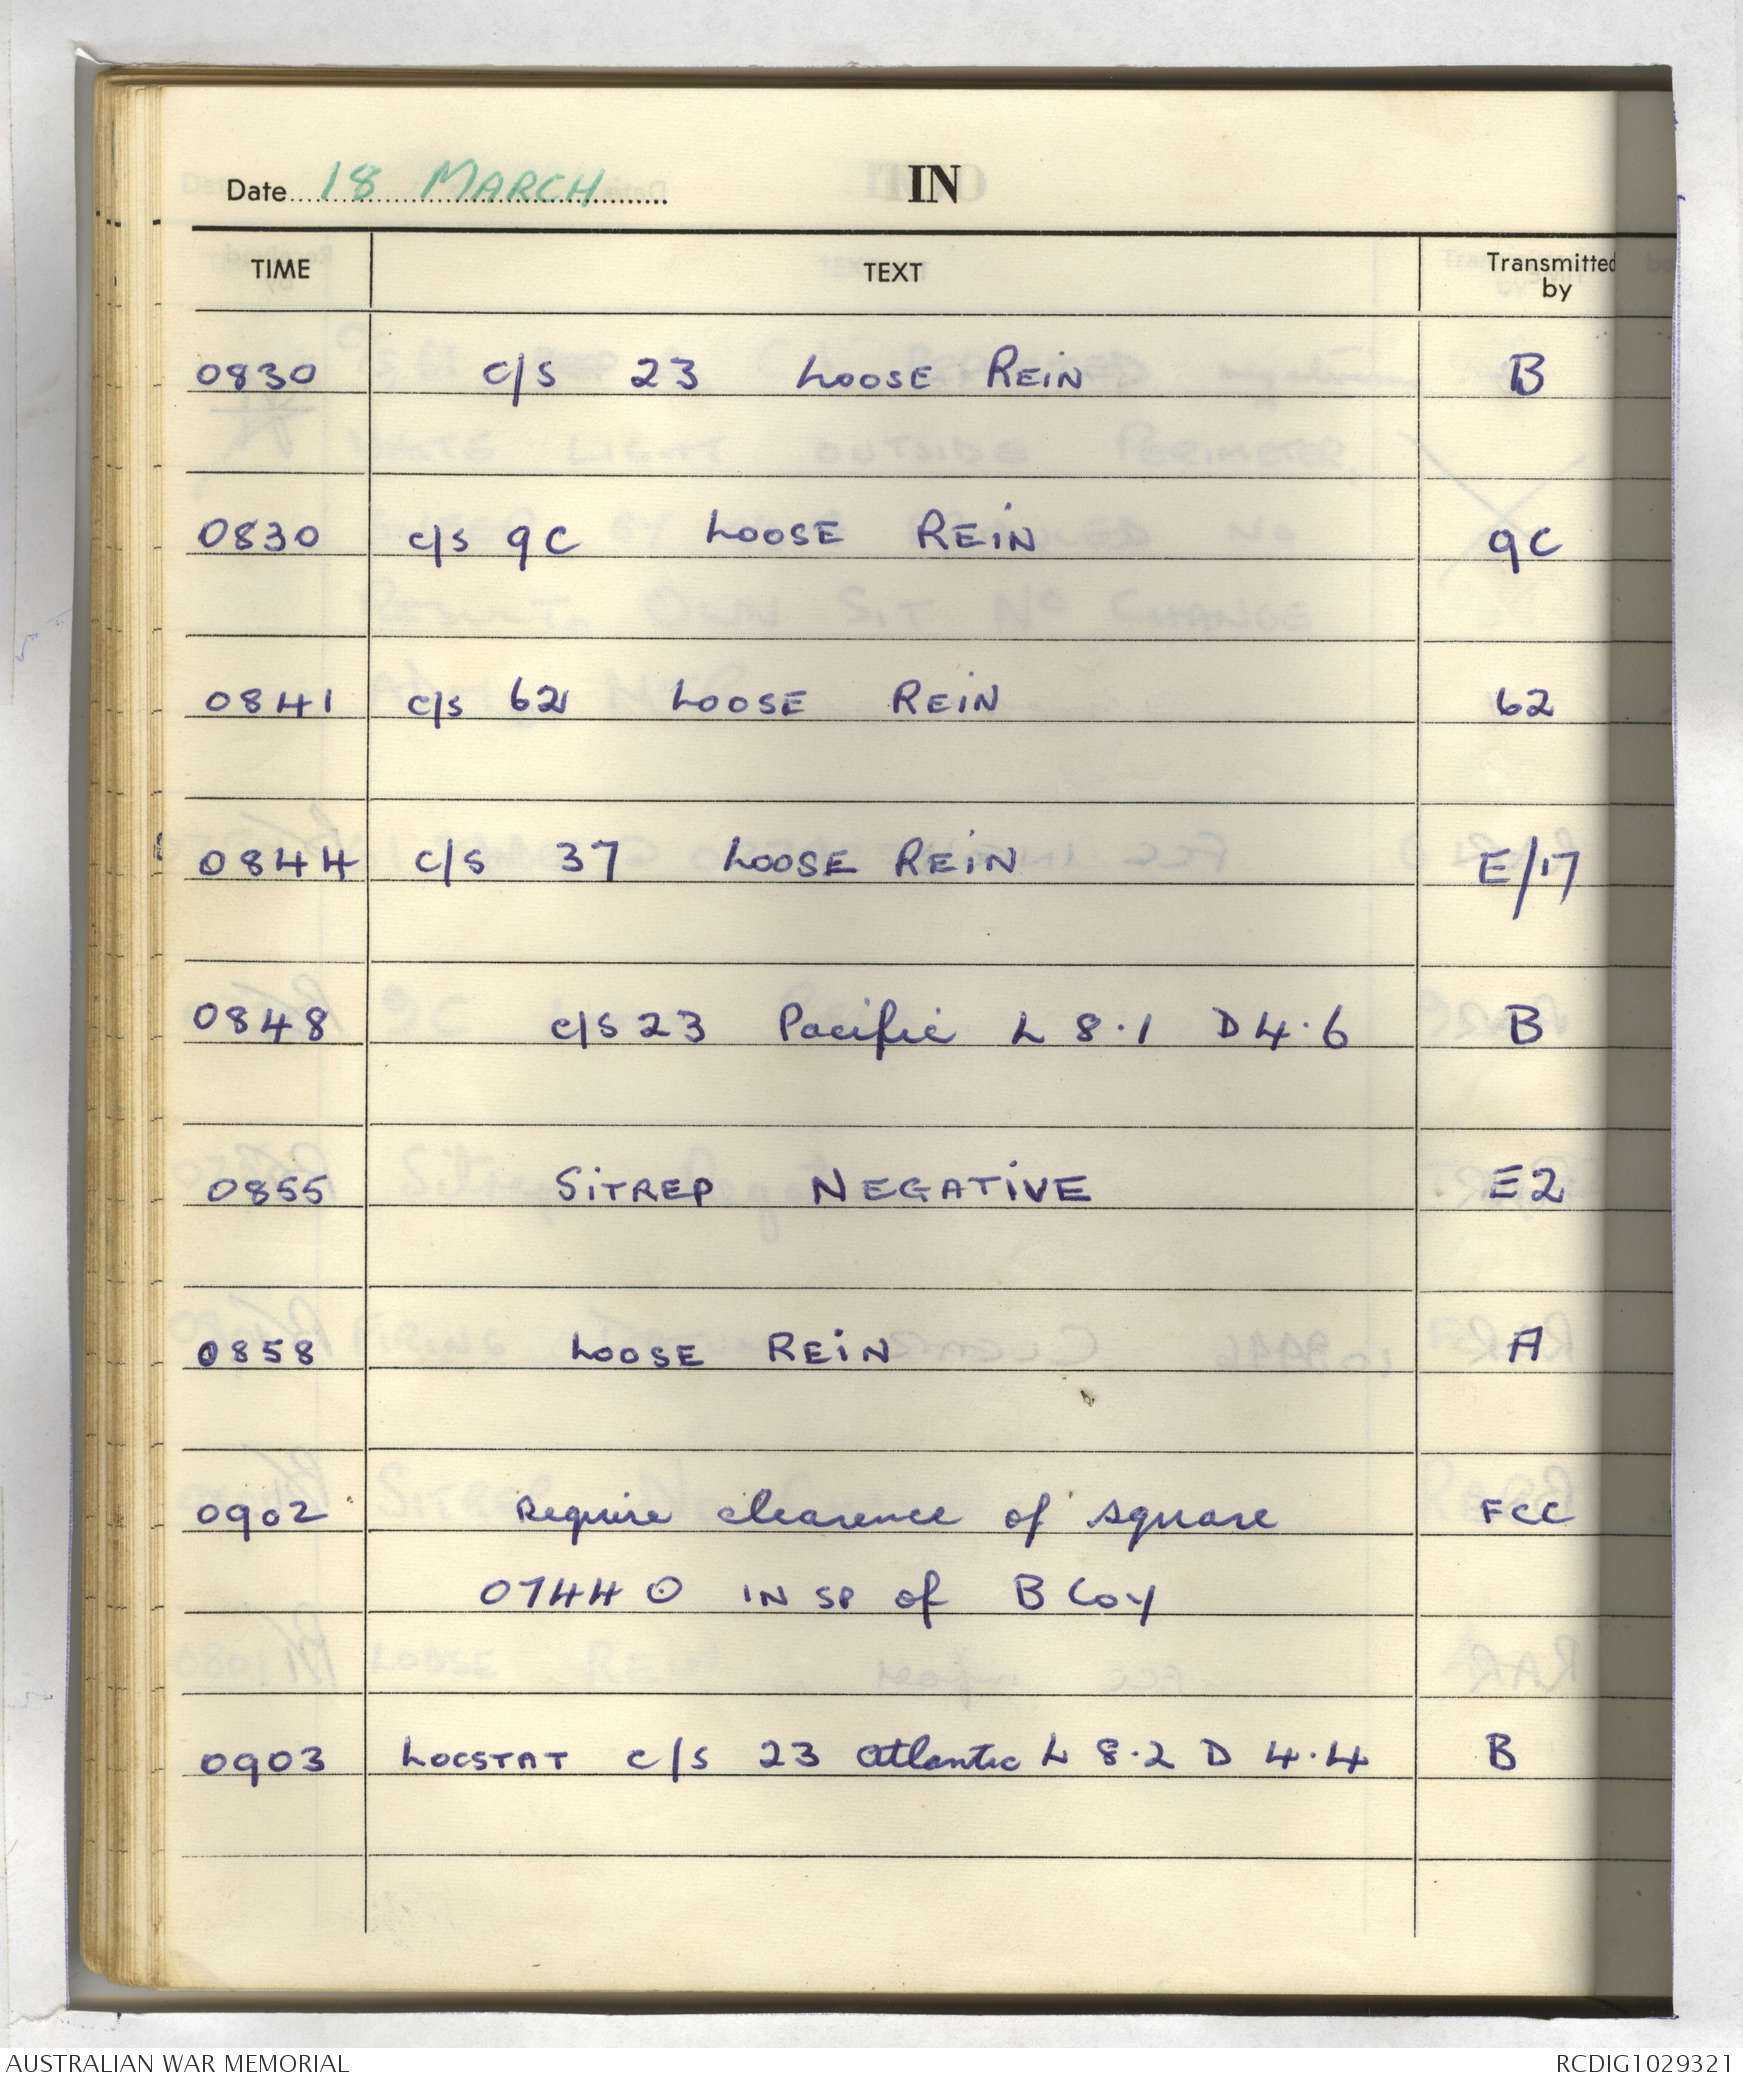 Date 18 MARCH IN
TIME TEXT Transmitted by
0830 c/s 23 LOOSE REIN B
0830 c/s 9C LOOSE REIN 9C
0841 c/s 62 LOOSE REIN 62
0844 c/s 37 LOOSE REIN E/17
0848 c/s 23 Pacific L 8.1 D 4.6 B
0855 SITREP NEGATIVE E2
0858 LOOSE REIN A
0902 Require clearence of square FCC
07440 IN SP of B Coy
0903 LOCSTAT c/s 23 Atlantic L 8.2 D 4.4 B
AUSTRALIAN WAR MEMORIAL RCDIG1029321